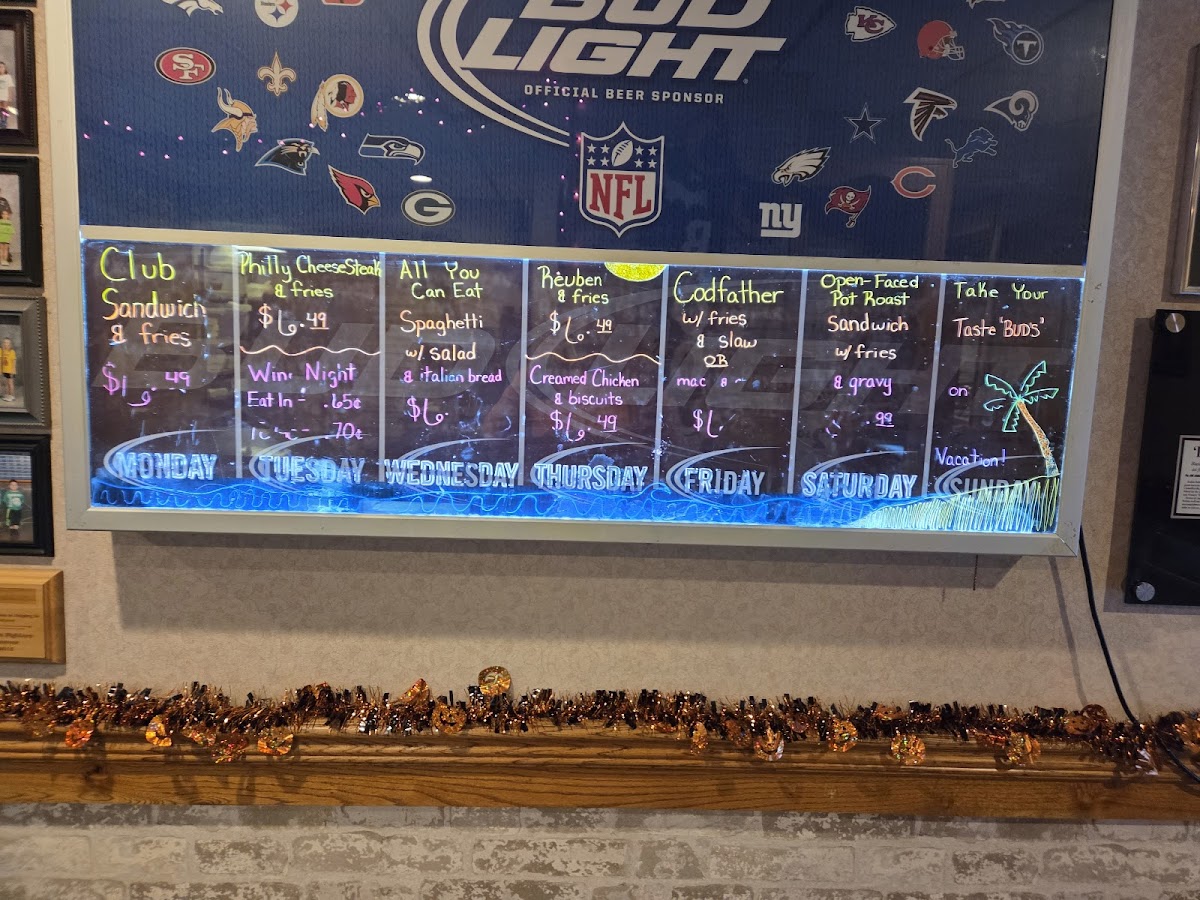 BUD
LIGHT
OFFICIAL BEER SPONSOR
NFL
SF
G
C
ny
KC
T
Club
Sandwich
& fries
.49
MONDAY
Philly CheeseSteak
& fries
$6.49
Night
Eat In - .65¢
.70¢
TUESDAY
All You
Can Eat
Spaghetti
w/ salad
& italian bread
$6.
WEDNESDAY
Reuben
& fries
$6.49
Creamed Chicken
& biscuits
$6.49
THURSDAY
Codfather
w/ fries
& slaw
OR
mac &
$6.
FRIDAY
Open-Faced
Pot Roast
Sandwich
w/ fries
& gravy
.99
SATURDAY
Take Your
Taste "BUDS"
on
Vacation!
SUNDAY